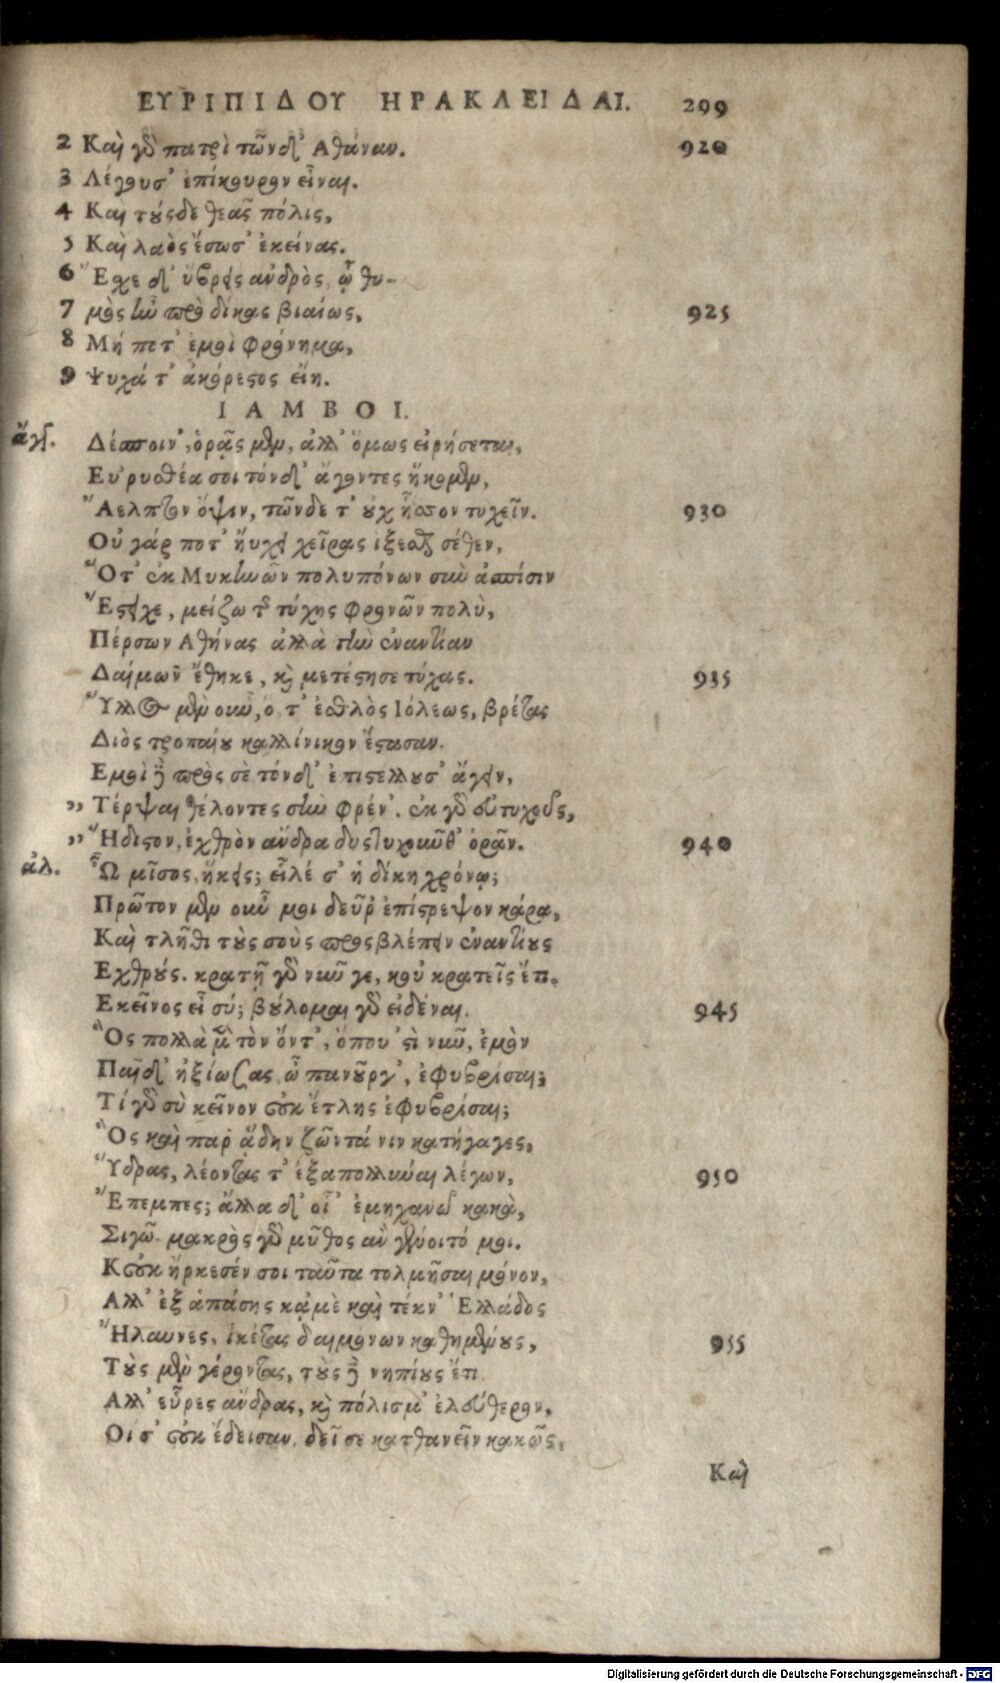 ΕΥΡΙΠΙΔΟΥ ΗΡΑΚΛΕΙΔΑΙ. 299
2 Καὶ γὰρ πατρὶ τῶνδ' Αθάναν. 920
3 Λέγουσ' ἐπίκουρον εἶναι.
4 Καὶ τοῦςδε θεᾶς πόλις,
5 Καὶ λαὸς ἔσωσ' ἐκείνας.
6 Ἔσχε δ' ὕβρεις ἀνδρὸς, ᾧ θυ-
7 μὸς ἦν πρὸ δίκας βιαίως, 925
8 Μή ποτ' ἐμοὶ φρόνημα,
9 Ψυχά τ' ἀκόρεστος εἴη.
ΙΑΜΒΟΙ.
ἄγγ. Δέσποιν', ὁρᾷς μὲν, ἀλλ' ὅμως εἰρήσεται,
Εὐρυσθέα σοι τόνδ' ἄγοντες ἥκομεν,
Ἄελπτον ὄψιν, τῶνδε τ' οὐχ ἧσσον τυχεῖν. 930
Οὐ γάρ ποτ' ηὔχει χεῖρας ἵξεσθαι σέθεν,
Ὅτ' ἐκ Μυκηνῶν πολυπόνων σὺν ἀσπίσιν
Ἔστειχε, μείζω τῆς τύχης φρονῶν πολὺ,
Πέρσων Αθήνας ἀλλὰ τὴν ἐναντίαν
Δαίμων ἔθηκε, καὶ μετέστησε τύχας. 935
Ὕλλος μὲν οὖν, ὅ, τ' ἐσθλὸς Ιόλεως, βρέτας
Διὸς τροπαίου καλλίνικον ἕστασαν.
Εμοὶ δὲ πρὸς σὲ τόνδ' ἐπιστέλλουσ' ἄγειν,
„ Τέρψαι θέλοντες σὴν φρέν'. ἐκ γὰρ εὐτυχοῦς,
„ Ἥδιστον, ἐχθρὸν ἄνδρα δυστυχοῦνθ' ὁρᾶν. 940
ἀλ. Ὦ μῖσος, ἥκεις; εἷλέ σ' ἡ δίκη χρόνῳ;
Πρῶτον μὲν οὖν μοι δεῦρ' ἐπίστρεψον κάρα,
Καὶ τλῆθι τοὺς σοὺς προςβλέπειν ἐναντίους
Εχθρούς. κρατῇ γὰρ νῦν γε, κοὐ κρατεῖς ἔτι.
Εκεῖνος εἶ σύ; βούλομαι γὰρ εἰδέναι. 945
Ὃς πολλὰ μὲν τὸν ὄντ', ὅπου 'στὶ νῦν, ἐμὸν
Παῖδ' ἠξίωσας, ὦ πανοῦργ', ἐφυβρίσαι;
Τί γὰρ σὺ κεῖνον οὐκ ἔτλης ἐφυβρίσαι;
Ὃς καὶ παρ' ᾅδην ζῶντά νιν κατήγαγες,
Ὕδρας, λέοντας τ' ἐξαπολλύναι λέγων, 950
Ἔπεμπες; ἄλλα δ' οἷ' ἐμηχανῶ κακὰ,
Σιγῶ. μακρὸς γὰρ μῦθος ἂν γένοιτό μοι.
Κοὐκ ἤρκεσέν σοι ταῦτα τολμῆσαι μόνον,
Αλλ' ἐξ ἁπάσης κᾀμὲ καὶ τέκν' Ἑλλάδος
Ἤλαυνες, ἱκέτας δαιμόνων καθημένους, 955
Τοὺς μὲν γέροντας, τοὺς δὲ νηπίους ἔτι.
Αλλ' εὗρες ἄνδρας, καὶ πόλισμ' ἐλεύθερον,
Οἵ σ' οὐκ ἔδεισαν. δεῖ σε κατθανεῖν κακῶς,
Καὶ
Digitalisierung gefördert durch die Deutsche Forschungsgemeinschaft - DFG